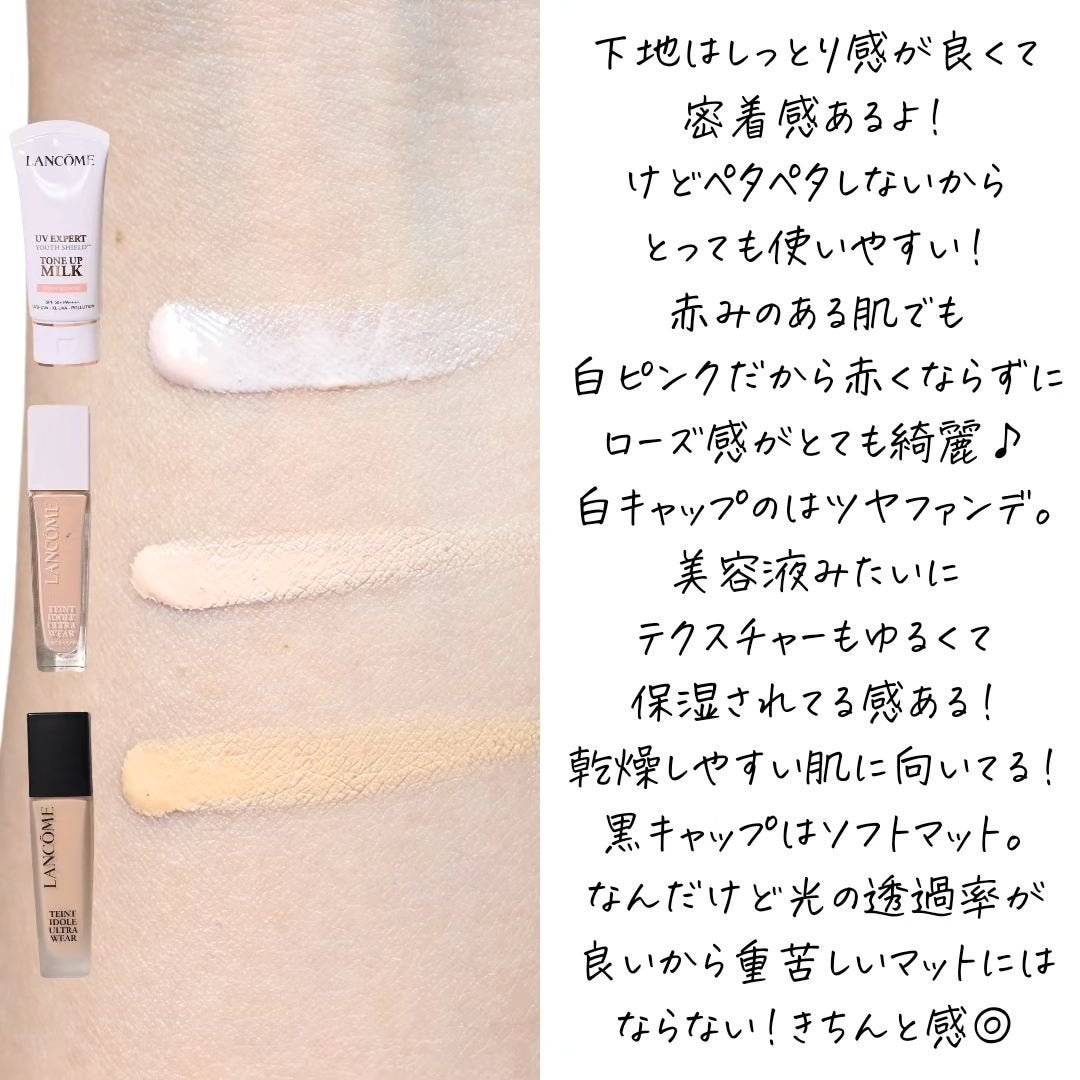 LANCÔME
UV EXPERT
YOUTH SHIELD™
TONE UP
MILK
LANCÔME
TEINT
IDOLE
ULTRA
WEAR
LANCÔME
TEINT
IDOLE
ULTRA
WEAR
下地はしっとり感が良くて
密着感あるよ!
けどペタペタしないから
とっても使いやすい!
赤みのある肌でも
白ピンクだから赤くならずに
ローズ感がとても綺麗♪
白キャップのはツヤファンデ。
美容液みたいに
テクスチャーもゆるくて
保湿されてる感ある!
乾燥しやすい肌に向いてる!
黒キャップはソフトマット。
なんだけど光の透過率が
良いから重苦しいマットには
ならない!きちんと感◎